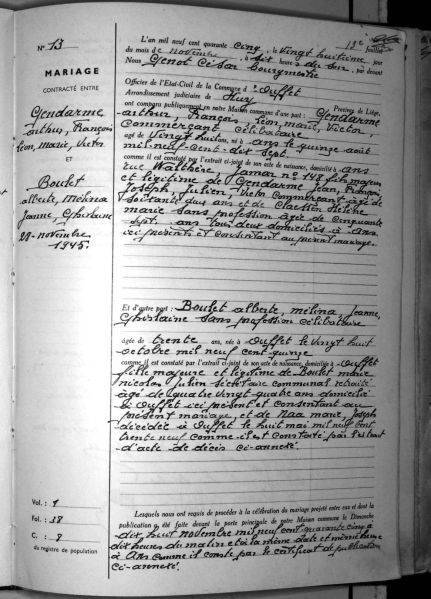 13e feuillet
N° 13
MARIAGE
CONTRACTÉ ENTRE
Gendarme
arthur, François
Léon, Marie, Victor
ET
Boulet
alberte, Mélina
Jeanne, Ghislaine
28 - novembre
1945.
L'an mil neuf cent quarante cinq, le vingt huitième jour
du mois de novembre, à dix heures du soir, par devant
Nous Genot César bourgmestre
Officier de l'Etat-Civil de la Commune d'Ouffet
Arrondissement judiciaire de Huy Province de Liége,
ont comparu publiquement en notre Maison commune d'une part : Gendarme
arthur, François, Léon, Marie, Victor
Commerçant célibataire
agé de vingt huit ans, né à ans le quinze août
mil neuf cent dix sept
comme il est constaté par l'extrait ci-joint de son acte de naissance, domicilié à ans
rue Walthère Jamar n° 148 fils majeur
et légitime de Gendarme Jean, François,
Joseph, Julien, Victor Commerçant âgé de
soixante deux ans et de Claessen Hélène
Marie sans profession agée de cinquante
sept ans tous deux domiciliés à ans
ici présents et consentant au présent mariage.
Et d'autre part : Boulet alberte, mélina, Jeanne,
Ghislaine sans profession célibataire
agée de trente ans, née à Ouffet le vingt huit
octobre mil neuf cent quinze
comme il est constaté par l'extrait ci-joint de son acte de naissance, domiciliée à Ouffet
fille majeure et légitime de Boulet marie
nicolas Julien secrétaire communal retraité
âgé de quatre vingt quatre ans domicilié
à Ouffet ici présent et consentant au
présent mariage, et de Naa marie, Joseph
décédée à Ouffet le huit mai mil neuf cent
trente neuf comme il est constaté par l'extrait
d'acte de décès ci-annexé.
Vol. : 1
Fol. : 38
C. : 8
du registre de population
Lesquels nous ont requis de procéder à la célébration du mariage projeté entre eux et dont la
publication a été faite devant la porte principale de notre Maison commune le Dimanche
dix huit novembre mil neuf cent quarante cinq à
dix heures du matin et à la même date et même heure
à Ans comme il conste par le certificat de publication
ci-annexé.